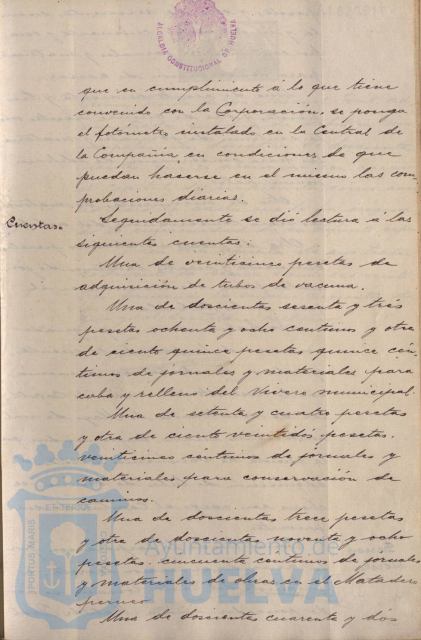 ALCALDIA CONSTITUCIONAL DE HUELVA
que en cumplimiento á lo que tiene
convenido con la Corporación, se ponga
el fotómetro instalado en la Central de
la Compañia, en condiciones de que
puedan hacerse en el mismo las com-
probaciones diarias.
Cuentas.
Seguidamente se dió lectura á las
siguientes cuentas:
Una de veinticinco pesetas de
adquisición de tubos de vacuna.
Una de doscientas sesenta y tres
pesetas ochenta y ocho centimos y otra
de ciento quince pesetas quince cén-
timos de jornales y materiales para
cuba y relleno del Vivero municipal.
Una de setenta y cuatro pesetas
y otra de ciento veintidós pesetas
veinticinco céntimos de jornales y
materiales para conservación de
caminos.
Una de doscientas trece pesetas
y otra de doscientas noventa y ocho
pesetas cincuenta centimos de jornales
y materiales de obras en el Matadero
Una de doscientas cuarenta y dos
PORTUS MARIS
ET TERRÆ
Ayuntamiento de
HUELVA